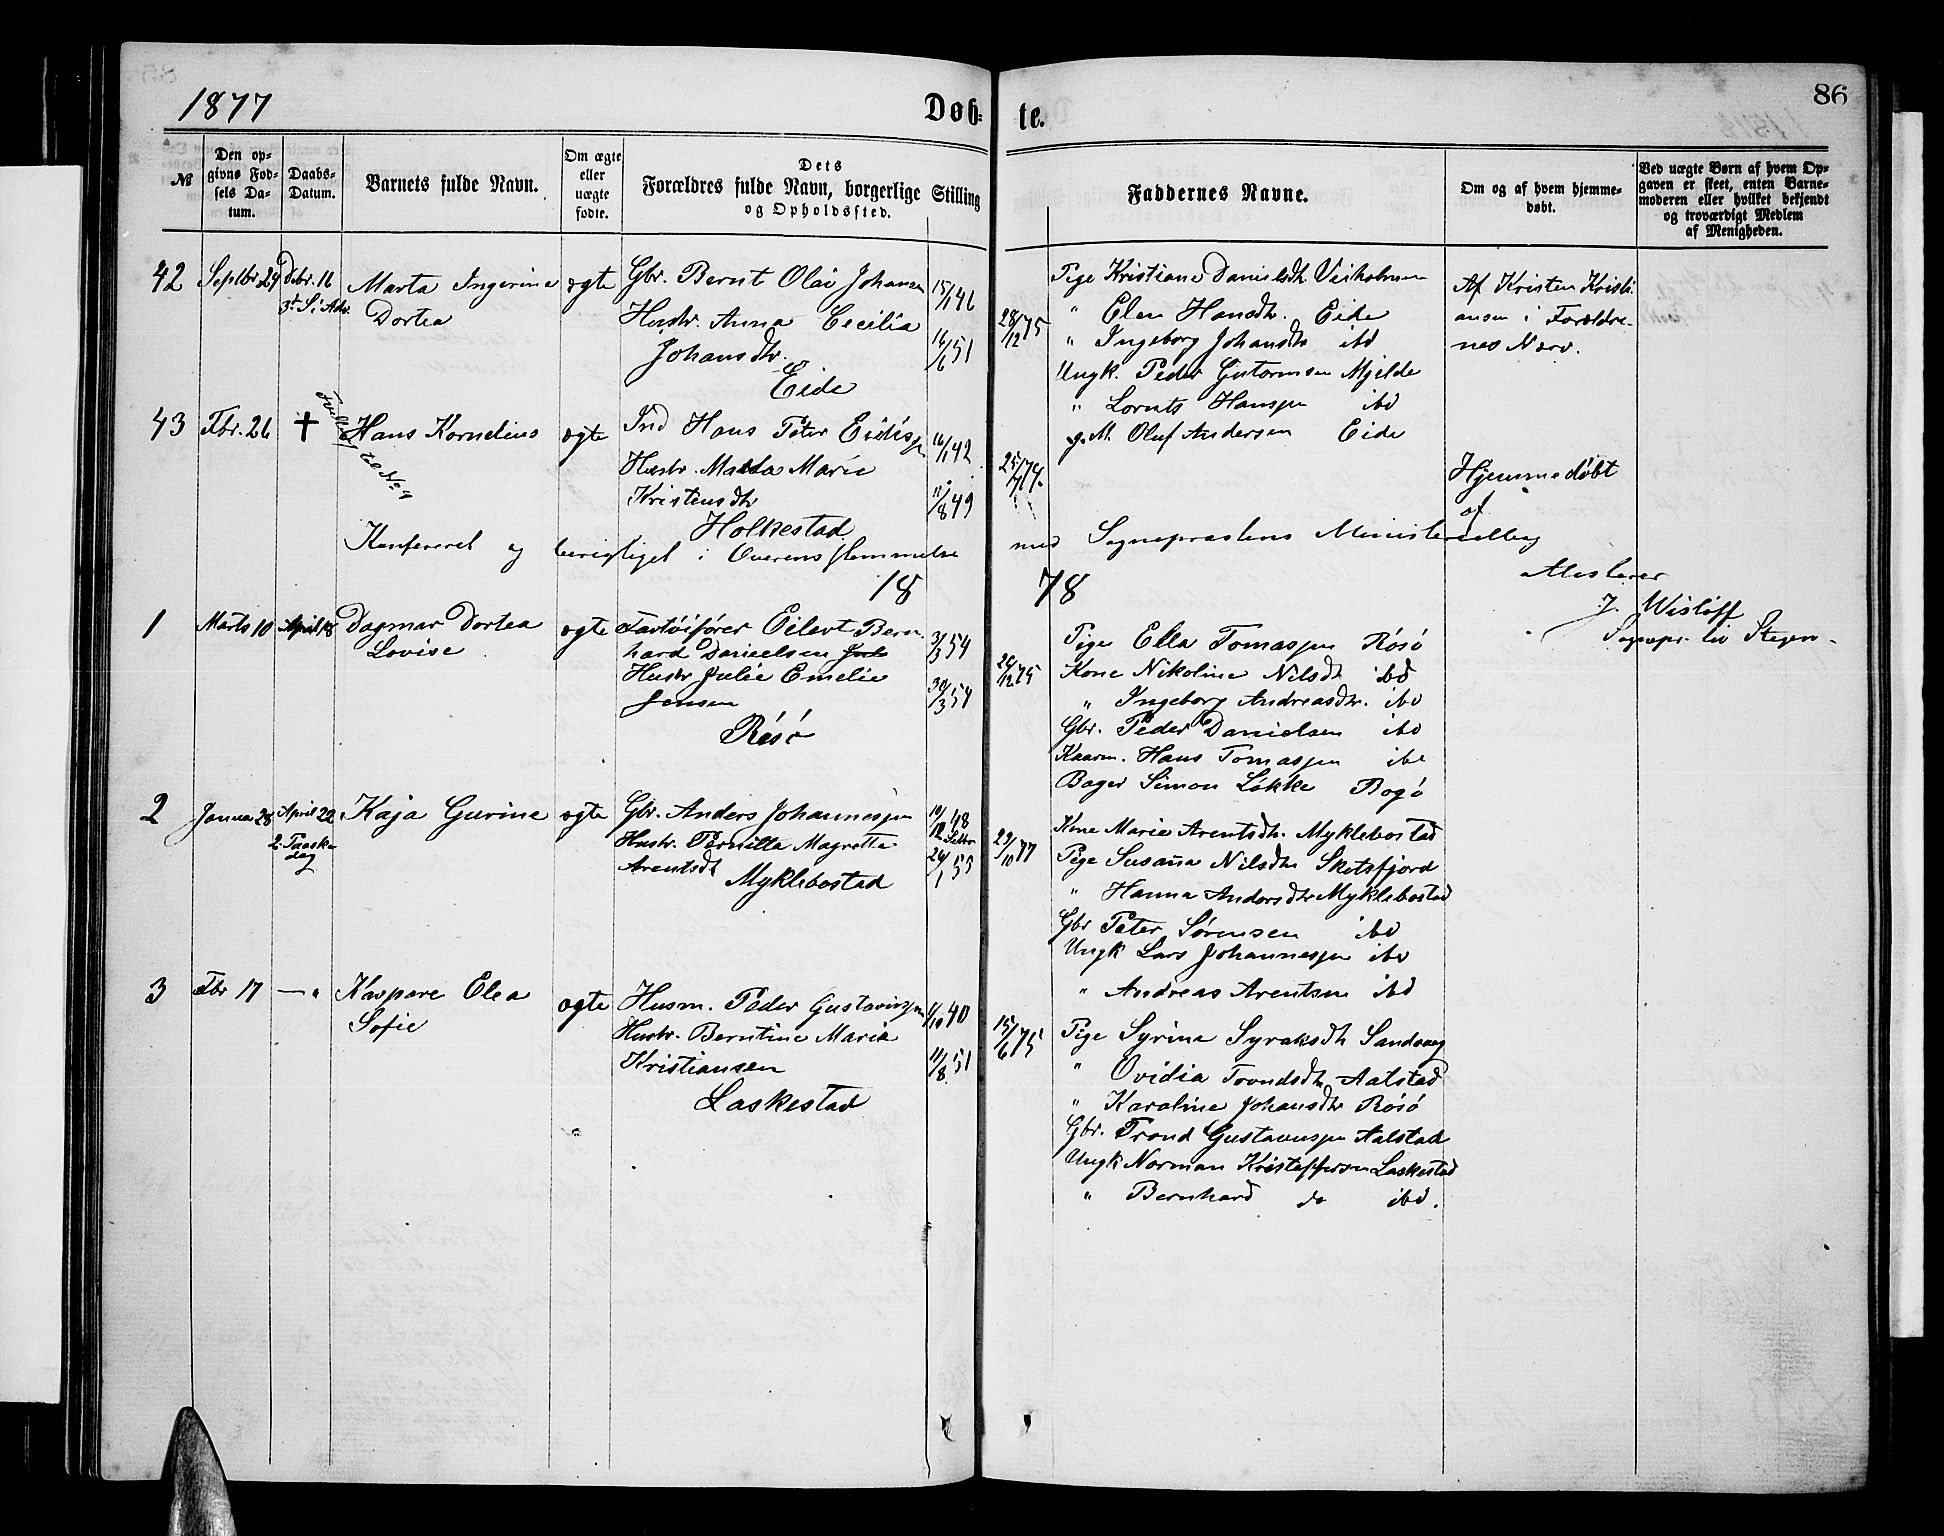 1877
Døb-
te.
86
№
Den op-
givne Fød-
sels Da-
tum.
Daabs-
Datum.
Barnets fulde Navn.
Om ægte
eller
uægte
fødte.
Dets
Forældres fulde Navn, borgerlige Stilling
og Opholdssted.
Faddernes Navne.
Om og af hvem hjemme-
døbt.
Ved uægte Børn af hvem Op-
gaven er skeet, enten Barne-
moderen eller hvilket bekjendt
og troværdigt Medlem
af Menigheden.
42
Septbr. 29
Dcbr. 16
3d S. i Adv.
Marta Ingerine
Dortea
ægte
Gbr. Bernt Olai Johansen
Hustr. Anna Cecilia
Johansdtr.
Eide
15/1 46
16/6 51
28/12 75
Pige Kristiane Danielsdtr
" Elen Hansdtr. Eide
" Ingeborg Johansdtr ibd
Ungk. Peder Gutormsen Mjelde
" Lornts Hanssen ibd
g.M. Oluf Andersen Eide
Af Kristen Kristi-
ansen i Forældre-
nes Nærv.
43
Fbr. 26
†
Hans Kornelius
ægte
Ind Hans Peter
Hustr. Marta Marie
Kristensdtr
Holkestad
16/1 42
11/8 49
25/7 74
Hjemmedøbt
af
Konfereret og berigtiget i Overensstemmelse
med Sognepræstens Ministerialbog
Attesterer
J. Wisløff
Sognepr. til Stegen
18
78
1
Marts 10
April 18
Dagmar Dortea
Lovise
ægte
Fartøifører Eilert Bern
hard Danielsen
Hustr Julie Emelie
Jensen
Røsø
3/3 54
30/3 54
26/12 75
Pige Ella Tomassen Røsø
Kone Nikoline Nilsdtr ibd
" Ingeborg Andreasdtr. ibd
Gbr. Peder Danielsen ibd
Kaarm. Hans Tomassen ibd
Bager Simon Løkke Bogø
2
Januar 28
April 22
2. Paaske
dag
Kaja Gurine
ægte
Gbr. Anders Johannessen
Hustr. Pernilla Magretta
Arentsdt
Myklebostad
10/12 48
24/1 55
29/10 77
Kone Marie Arentsdtr. Myklebostad
Pige Susanna Nilsdtr Skotsfjord
" Hanna Andersdtr Myklebostad
Gbr Peter Sørensen ibd
Ungk Lars Johannessen ibd
" Andreas Arentsen ibd
3
Fbr 17
— "
Kaspare Elea
Sofie
ægte
Husm. Peder Gustavussen
Hustr. Berntine Maria
Kristiansen
Laskestad
/10 40
11/8 51
15/6 75
Pige Syrina Syraksdtr Sandvaag
" Ovidia Trondsdtr Aalstad
" Karoline Johansdtr Røsø
Gbr. Trond Gustavussen Aalstad
Ungk Norman Kristoffersen Laskestad
" Bernhard do ibd.